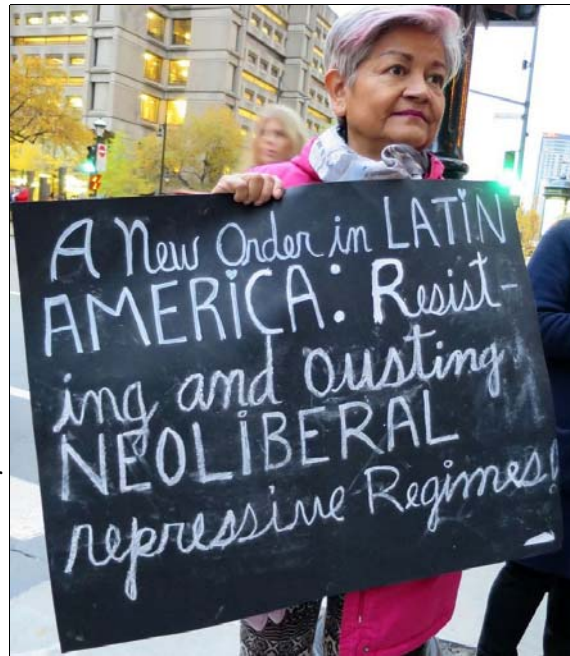 A New Order in LATIN
AMERICA: Resist-
ing and ousting
NEOLIBERAL
repressive Regimes!